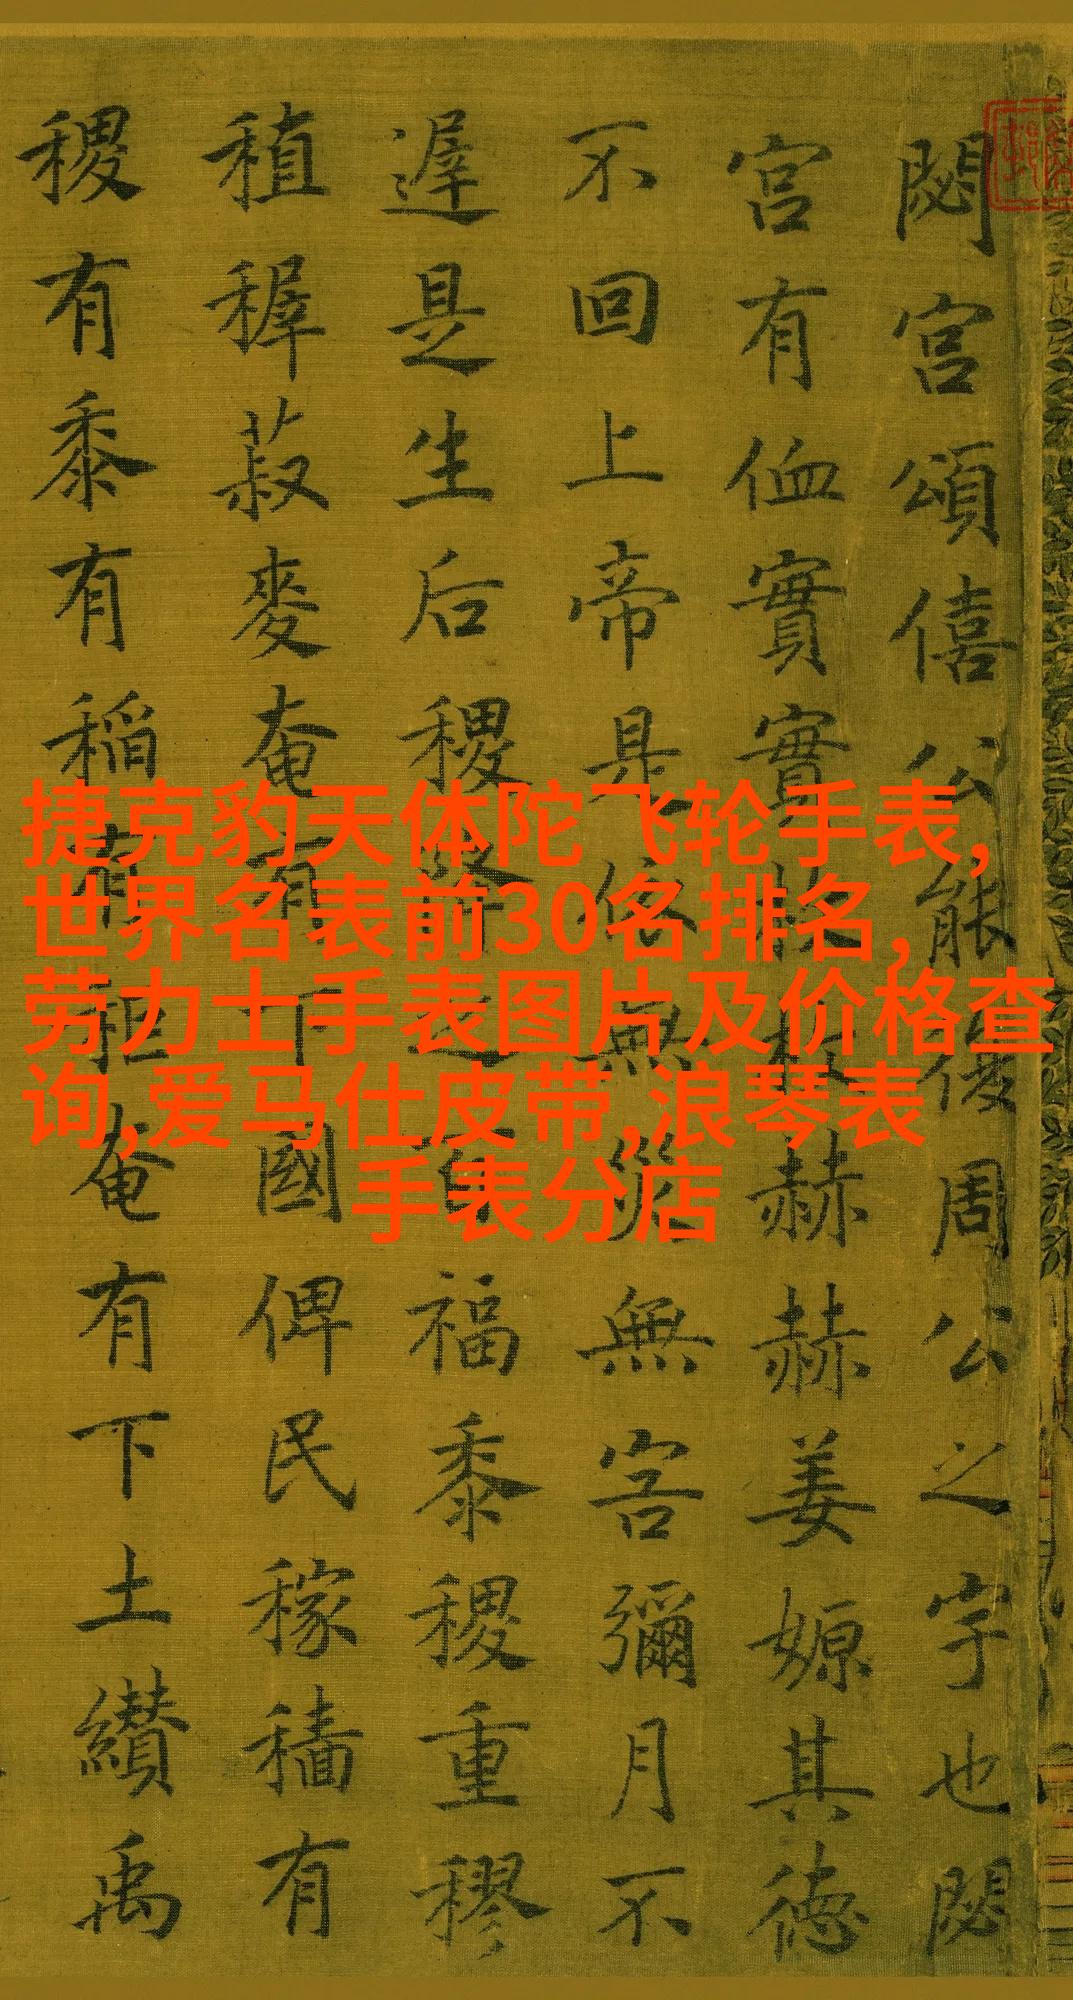 閟宮頌僖公能復周公之宇也閟
宮有侐實實枚枚赫赫姜嫄其德
不回上帝是依無災無害彌月不
遲是生后稷降之百福黍稷重穋
稙稺菽麥奄有下國俾民稼穡有
稷有黍有稻有秬奄有下土纘禹
捷克豹天体陀飞轮手表,
世界名表前30名排名,
劳力士手表图片及价格查
询,爱马仕皮带,浪琴表
手表分店